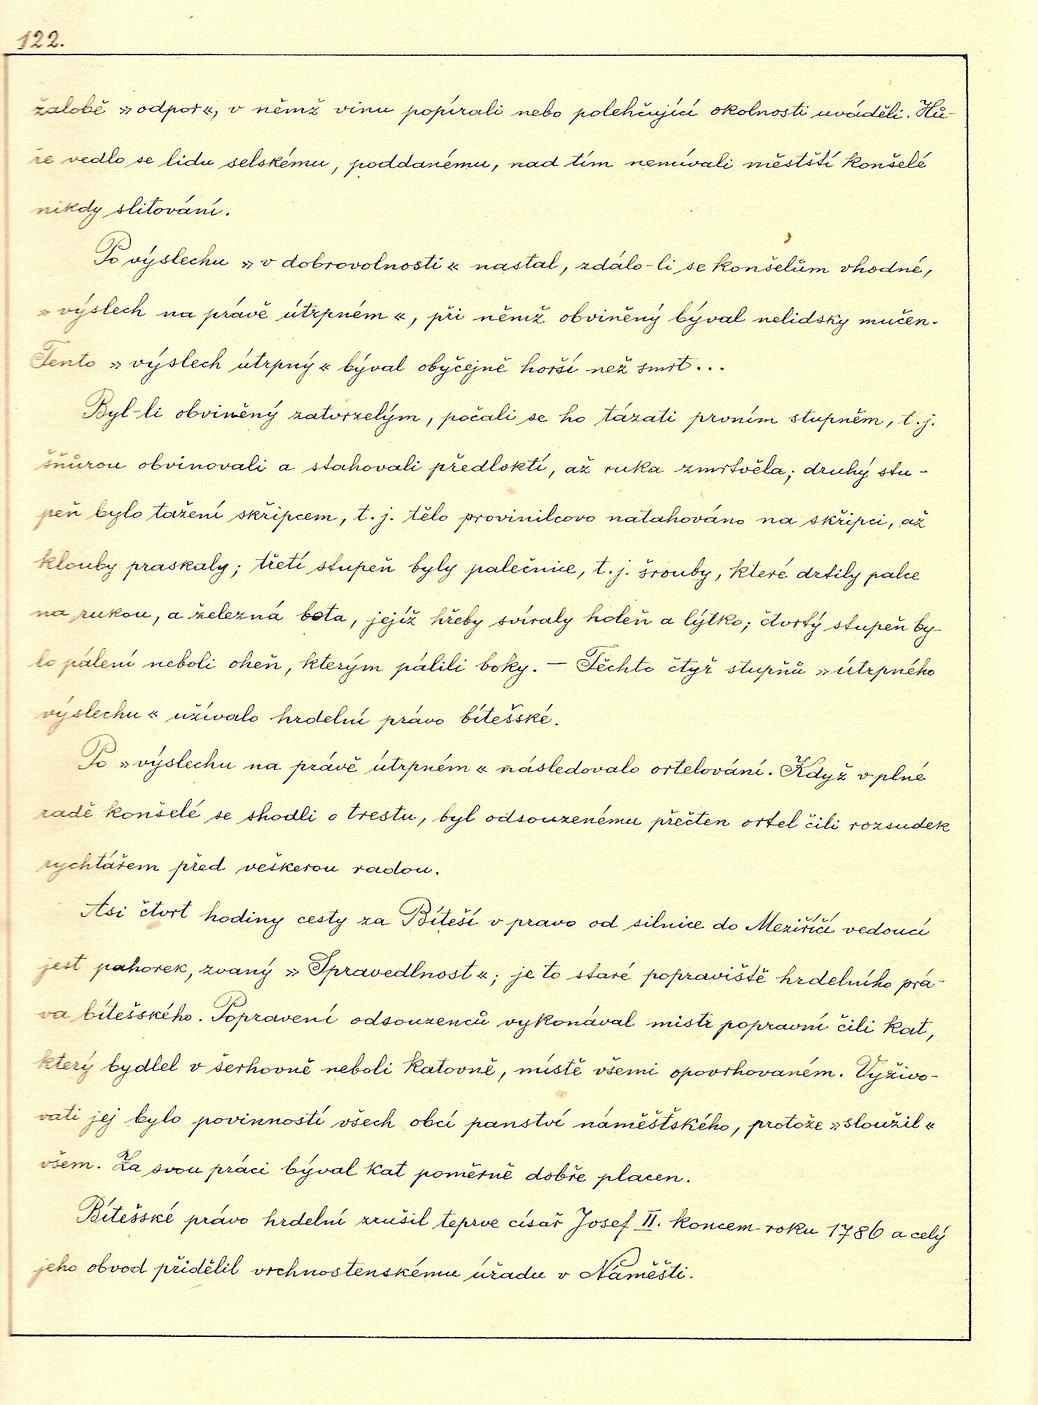 122.
žalobě »odpor«, v němž vinu popírali nebo polehčující okolnosti uváděli. Hů-
ře vedlo se lidu selskému, poddanému, nad tím nemívali městští konšelé
nikdy slitování.
Po výslechu »v dobrovolnosti« nastal, zdálo-li se konšelům vhodné,
»výslech na právě útrpném«, při němž obviněný býval nelidsky mučen.
Tento »výslech útrpný« býval obyčejně horší než smrt...
Byl-li obviněný zatvrzelým, počali se ho tázati prvním stupněm, t.j.
šňůrou obvinovali a stahovali předloktí, až ruka zmrtvěla; druhý stu-
peň bylo tažení skřipcem, t.j. tělo provinilcovo natahováno na skřipci, až
klouby praskaly; třetí stupeň byly palečnice, t.j. šrouby, které drtily palce
na rukou, a železná bota, jejíž hřeby svíraly holeň a lýtko; čtvrtý stupeň by-
lo pálení neboli oheň, kterým pálili boky. — Těchto čtyř stupňů »útrpného
výslechu« užívalo hrdelní právo bítešské.
Po »výslechu na právě útrpném« následovalo ortelování. Když v plné
radě konšelé se shodli o trestu, byl odsouzenému přečten ortel čili rozsudek
rychtářem před veškerou radou.
Asi čtvrt hodiny cesty za Bíteší v pravo od silnice do Meziříčí vedoucí
jest pahorek, zvaný »Spravedlnost«; je to staré popraviště hrdelního prá-
va bítešského. Popravení odsouzenců vykonával mistr popravní čili kat,
který bydlel v šerhovně neboli katovně, místě všemi opovrhovaném. Vyživo-
vati jej bylo povinností všech obcí panství náměšťského, protože »sloužil«
všem. Za svou práci býval kat poměrně dobře placen.
Bítešské právo hrdelní zrušil teprve císař Josef II. koncem roku 1786 a celý
jeho obvod přidělil vrchnostenskému úřadu v Náměšti.